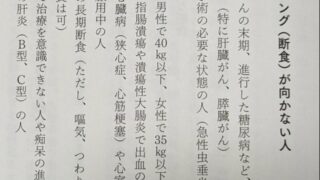 ング（断食）が向かない人
んの末期、進行した糖尿病など
（特に肝臓がん、膵臓がん）
術の必要な状態の人（急性虫垂
男性で40kg以下、女性で35kg以下
指腸潰瘍や潰瘍性大腸炎で出血の
心臓病（狭心症、心筋梗塞）や心室
用中の人
長期断食（ただし、嘔気、つわり
は可）
治療を意識できない人や痴呆の進
肝炎（B型、C型）の人